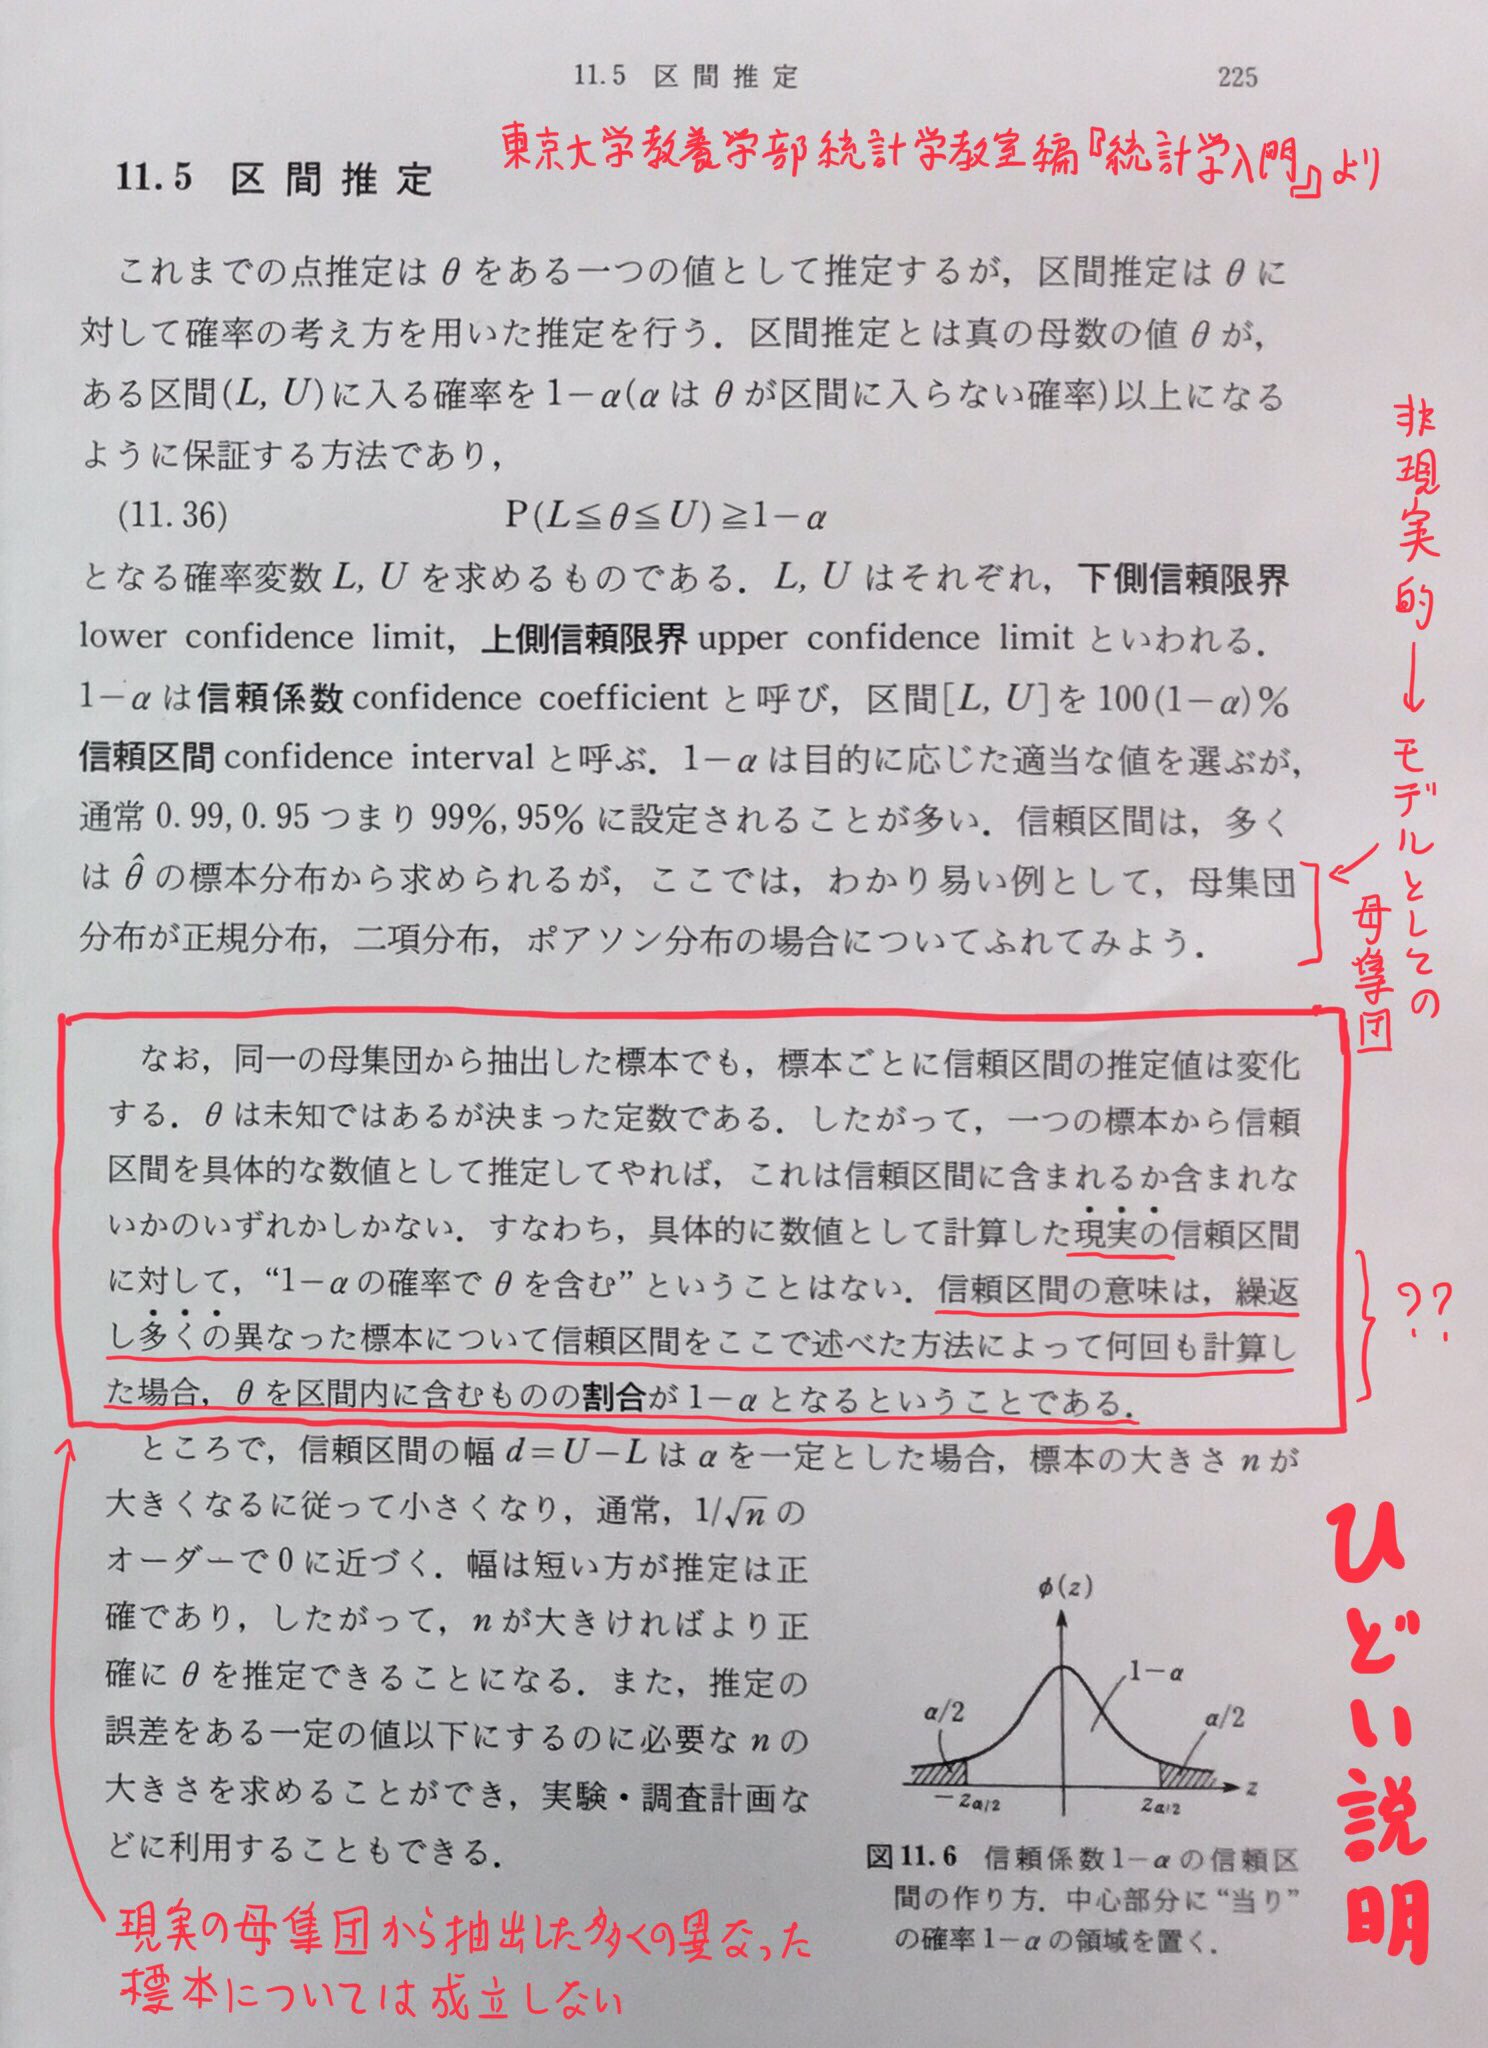 11.5 区間推定
225
東京大学教養学部統計学教室編『統計学入門』より
11.5 区間推定
これまでの点推定は θ をある一つの値として推定するが，区間推定は θ に
対して確率の考え方を用いた推定を行う．区間推定とは真の母数の値 θ が，
ある区間(L, U)に入る確率を 1－α(α は θ が区間に入らない確率)以上になる
ように保証する方法であり，
(11.36) P(L≦θ≦U)≧1－α
となる確率変数 L, U を求めるものである．L, U はそれぞれ，下側信頼限界
lower confidence limit，上側信頼限界 upper confidence limit といわれる．
1－α は信頼係数 confidence coefficient と呼び，区間[L, U]を 100(1－α)%
信頼区間 confidence interval と呼ぶ．1－α は目的に応じた適当な値を選ぶが，
通常 0.99, 0.95 つまり 99%, 95% に設定されることが多い．信頼区間は，多く
は θ̂ の標本分布から求められるが，ここでは，わかり易い例として，母集団
分布が正規分布，二項分布，ポアソン分布の場合についてふれてみよう．
非現実的→モデルとしての
母集団
なお，同一の母集団から抽出した標本でも，標本ごとに信頼区間の推定値は変化
する．θ は未知ではあるが決まった定数である．したがって，一つの標本から信頼
区間を具体的な数値として推定してやれば，これは信頼区間に含まれるか含まれな
いかのいずれかしかない．すなわち，具体的に数値として計算した現実の信頼区間
に対して，“1－α の確率で θ を含む” ということはない．信頼区間の意味は，繰返
し多くの異なった標本について信頼区間をここで述べた方法によって何回も計算し
た場合，θ を区間内に含むものの割合が 1－α となるということである．
??
ところで，信頼区間の幅 d＝U－L は α を一定とした場合，標本の大きさ n が
大きくなるに従って小さくなり，通常，1/√n の
オーダーで 0 に近づく．幅は短い方が推定は正
確であり，したがって，n が大きければより正
確に θ を推定できることになる．また，推定の
誤差をある一定の値以下にするのに必要な n の
大きさを求めることができ，実験・調査計画な
どに利用することもできる．
ひどい説明
φ(z)
1－α
α/2
α/2
－zα/2
zα/2
z
図11.6 信頼係数 1－α の信頼区
間の作り方．中心部分に “当り”
の確率 1－α の領域を置く．
現実の母集団から抽出した多くの異なった
標本については成立しない